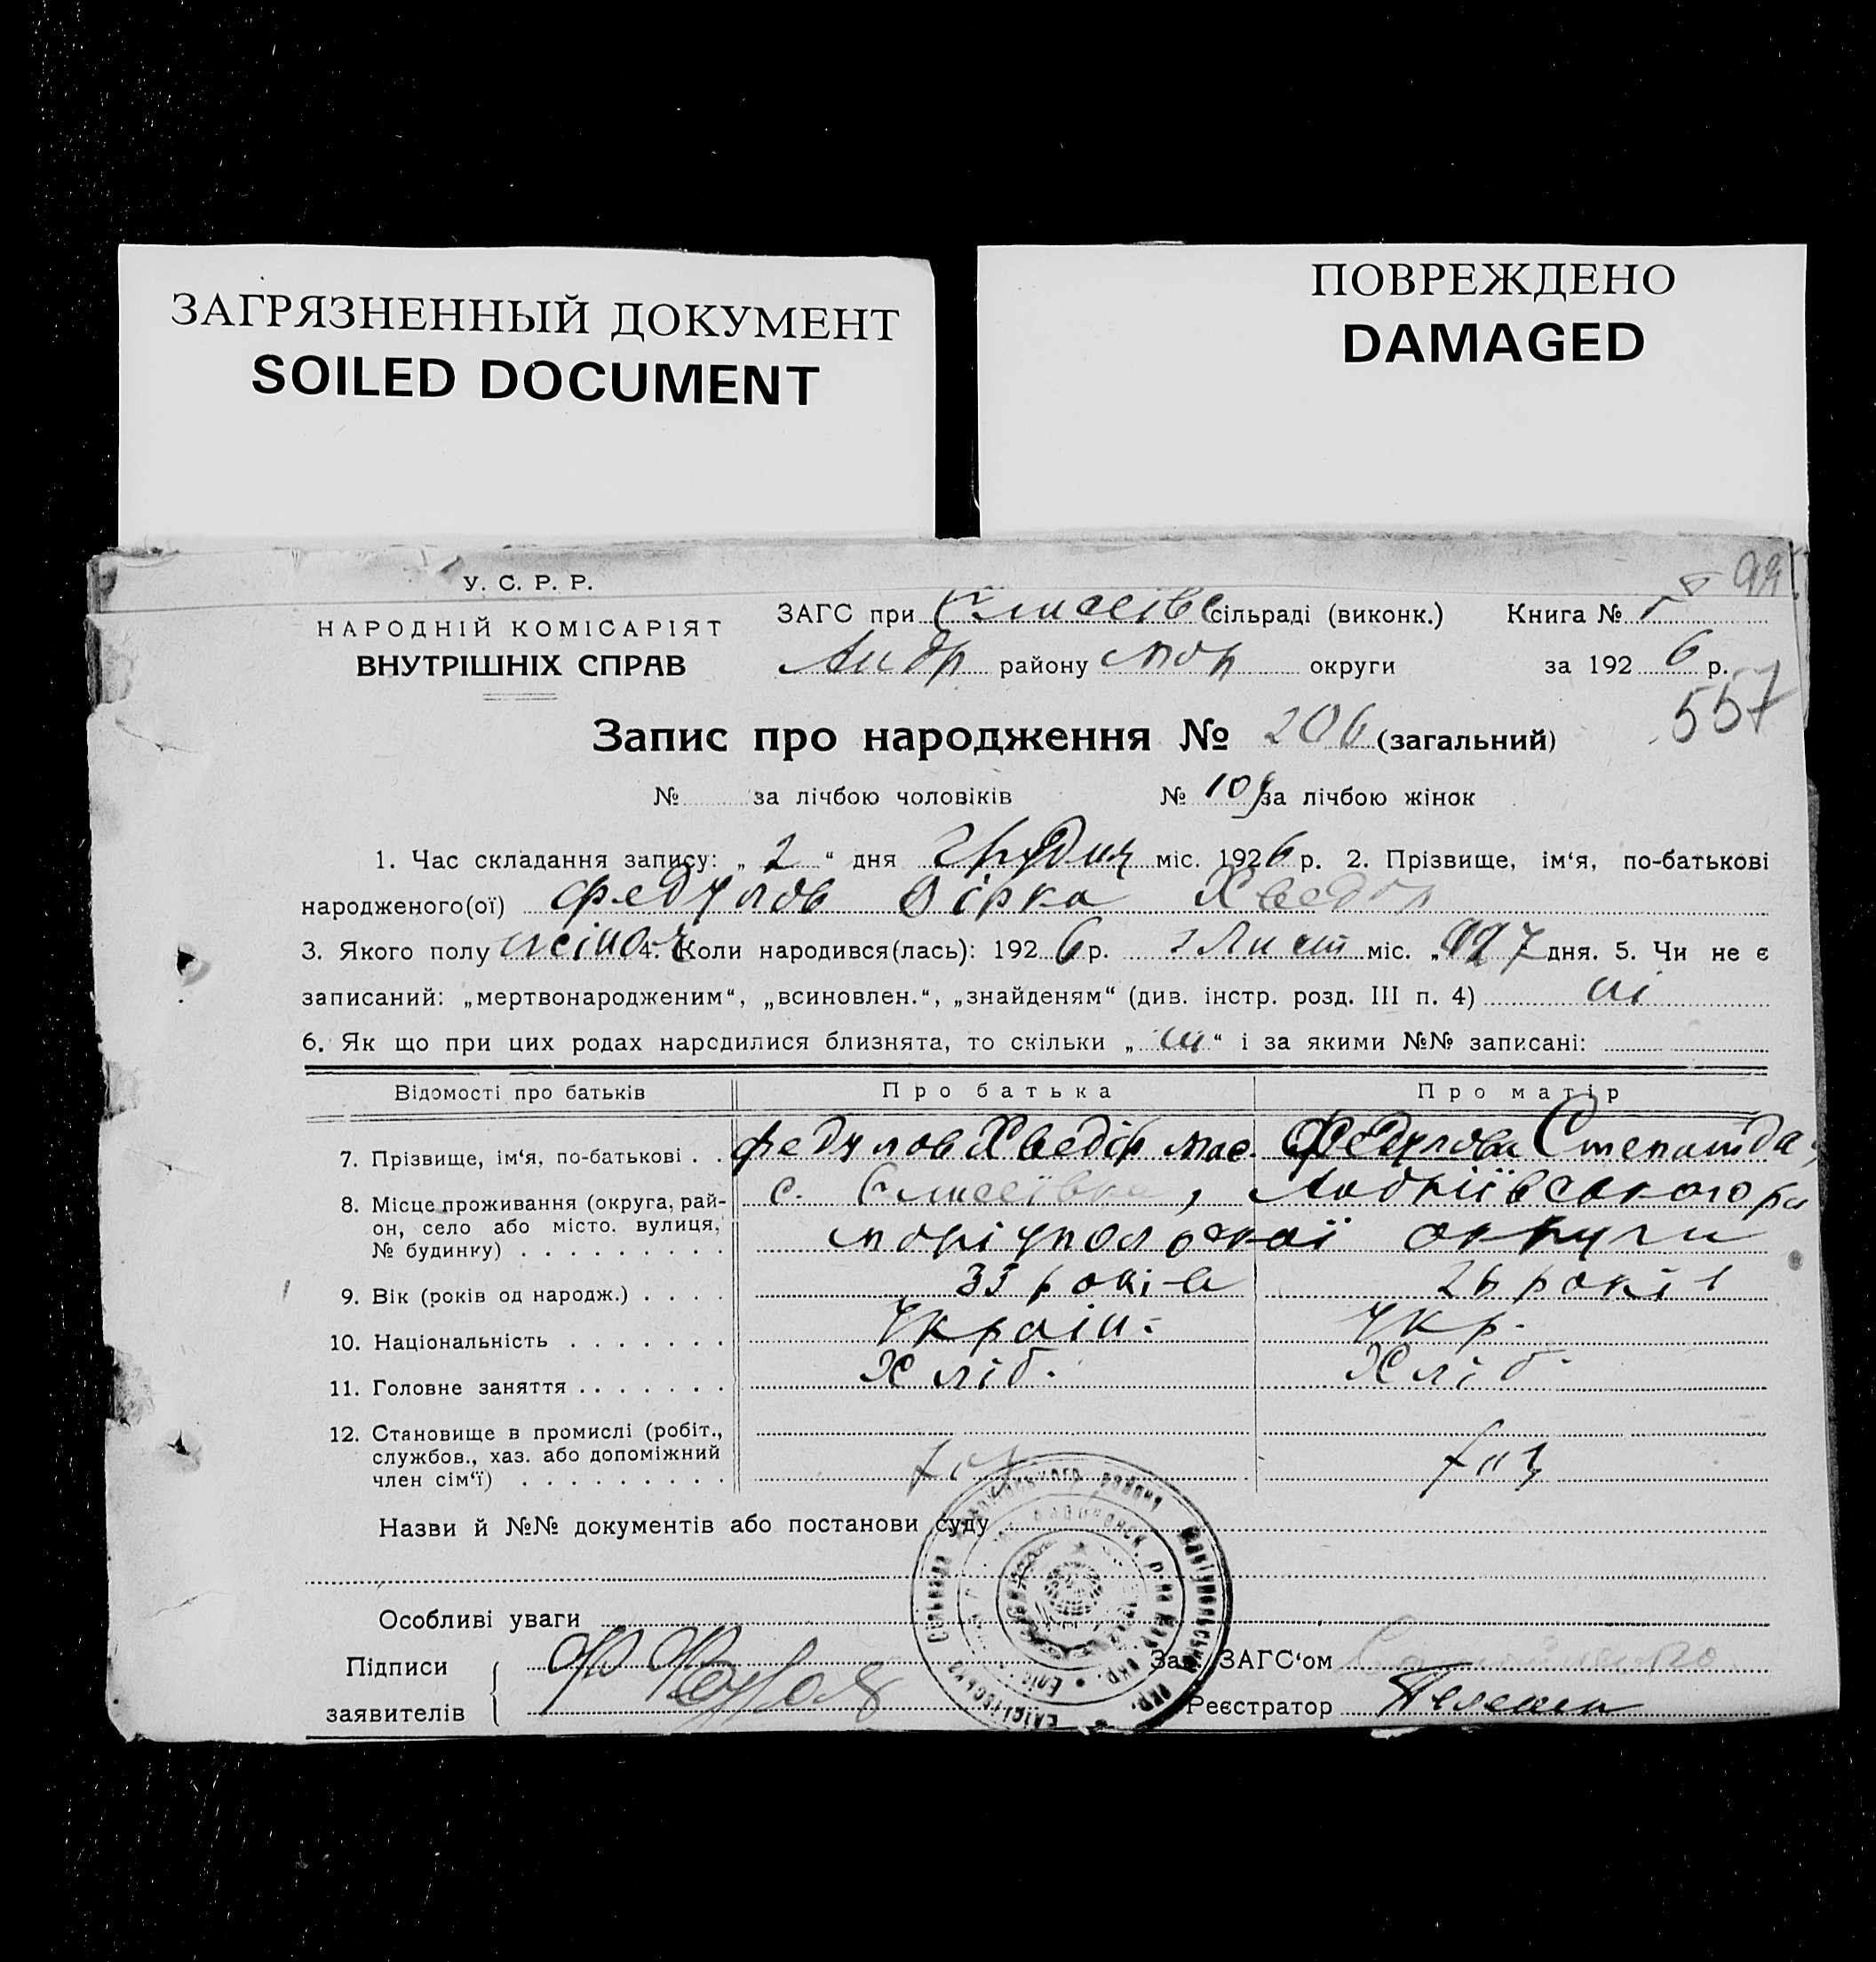 ЗАГРЯЗНЕННЫЙ ДОКУМЕНТ
SOILED DOCUMENT
ПОВРЕЖДЕНО
DAMAGED
99
У. С. Р. Р.
НАРОДНІЙ КОМІСАРІЯТ
ВНУТРІШНІХ СПРАВ
ЗАГС при Єлисеївс сільраді (виконк.) Книга №
Андр району мор округи за 192 6 р.
557
Запис про народження № 206 (загальний)
№ за лічбою чоловіків № 109 за лічбою жінок
1. Час складання запису: „ 2 “ дня Грудня міс. 1926 р. 2. Прізвище, ім‘я, по-батькові
народженого(ої) Федулов Вірка Хведор
3. Якого полу жіноч 4. Коли народився(лась): 192 6 р. Лист міс. „ 27 дня. 5. Чи не є
записаний: „мертвонародженим“, „всиновлен.“, „знайденям“ (див. інстр. розд. III п. 4) ні
6. Як що при цих родах народилися близнята, то скільки „ ні “ і за якими №№ записані:
Відомості про батьків Про батька Про матір
7. Прізвище, ім‘я, по-батькові . . Федулов Хведір Федулова Степанида
8. Місце проживання (округа, рай-
он, село або місто. вулиця,
№ будинку) . . . . . . . . .
с. Єлисеївка, Андріївського р
моріупольської округи
9. Вік (років од народж.) . . . . 35 років 26 років
10. Національність . . . . . . . Україн. Укр.
11. Головне заняття . . . . . . . Хліб. Хліб.
12. Становище в промислі (робіт.,
службов., хаз. або допоміжний
член сім‘ї) . . . . . . . . . хаз хаз
Назви й №№ документів або постанови суду
Особливі уваги
Підписи
заявителів
Зав. ЗАГС‘ом
Реєстратор